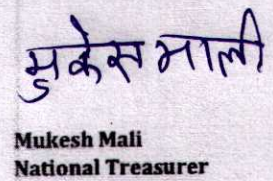 मुकेस माली
Mukesh Mali
National Treasurer